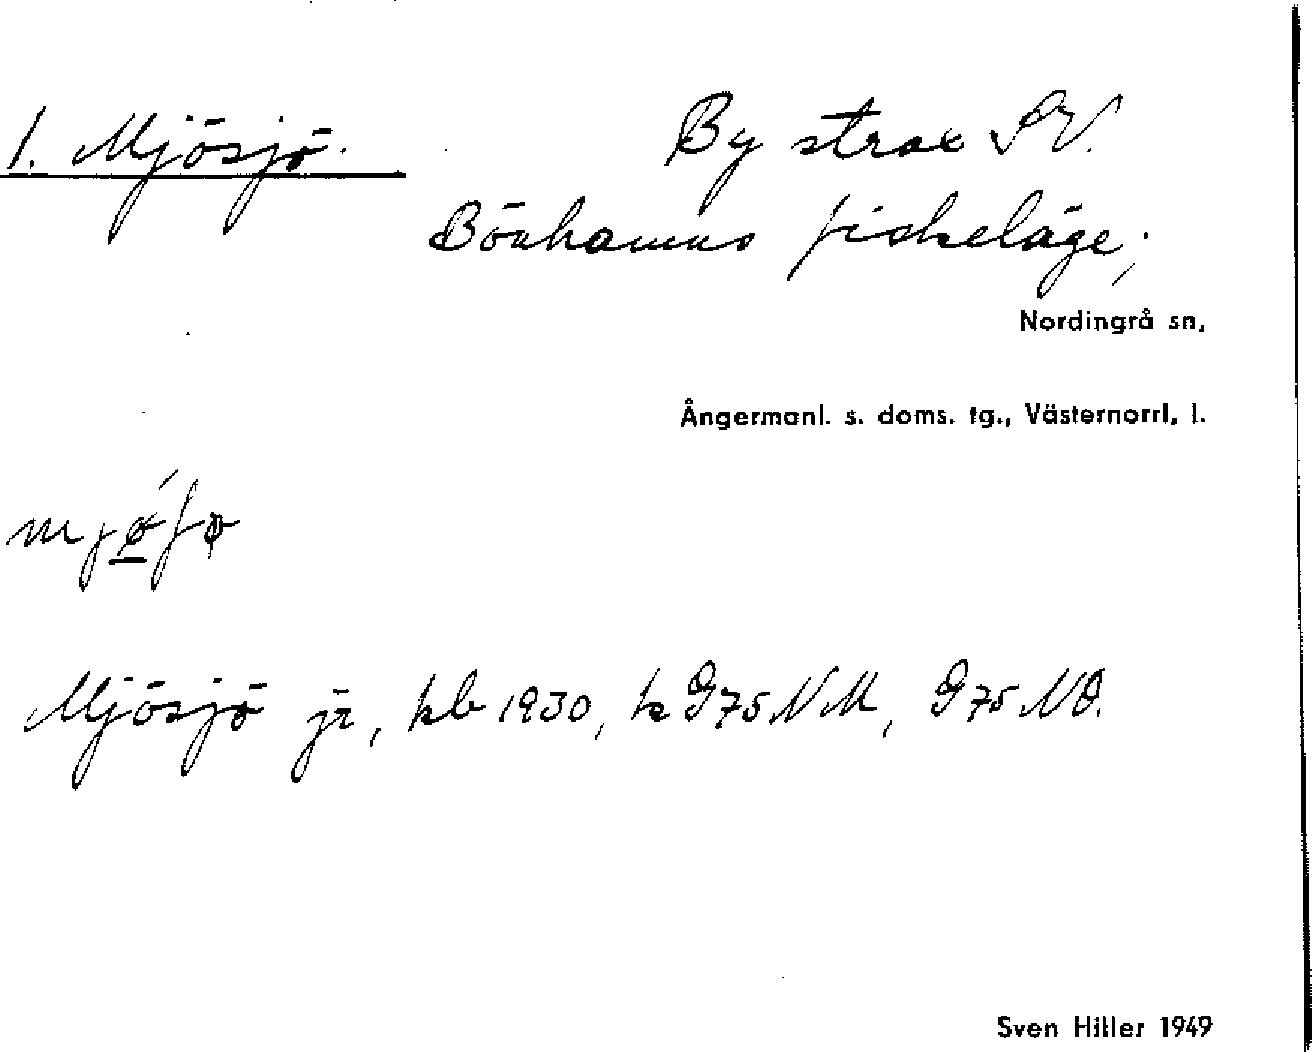 1. Mjösjö.
By strax SV.
Bönhamns fiskeläge;
Nordingrå sn,
Ångermanl. s. doms. tg., Västernorrl. l.
Mjösjö jr, kb 1930, k G75NM, G75NO.
Sven Hiller 1949